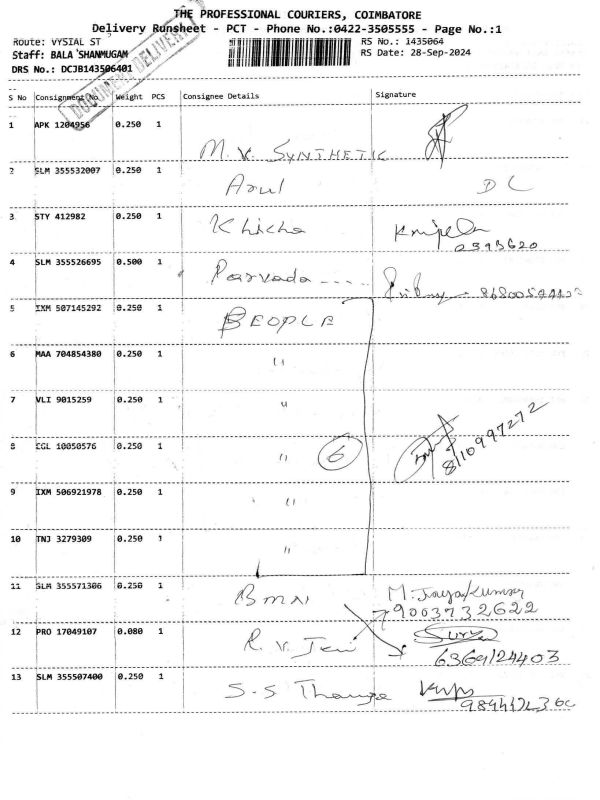 THE PROFESSIONAL COURIERS, COIMBATORE
Delivery Runsheet - PCT - Phone No.:0422-3505555 - Page No.:1
Route: VYSIAL ST RS No.: 1435064
Staff: BALA SHANMUGAM RS Date: 28-Sep-2024
DRS No.: DCJB143506401
DOCUMENT DELIVERY
S No Consignment No Weight PCS Consignee Details Signature
1 APK 1204956 0.250 1 M. V. SYNTHETIC
2 SLM 355532007 0.250 1 Arul DC
3 STY 412982 0.250 1 Khicha
4 SLM 355526695 0.500 1 Parvada ----
5 IXM 507145292 0.250 1 BEOPLE
6 MAA 704854380 0.250 1 "
7 VLI 9015259 0.250 1 "
8 CGL 10050576 0.250 1 " 6 8110997272
9 IXM 506921978 0.250 1 "
10 TNJ 3279309 0.250 1 "
11 SLM 355571306 0.250 1 M. Jayakumar
9003732622
12 PRO 17049107 0.080 1 R. V. Surya
6369124403
13 SLM 355507400 0.250 1 S-S